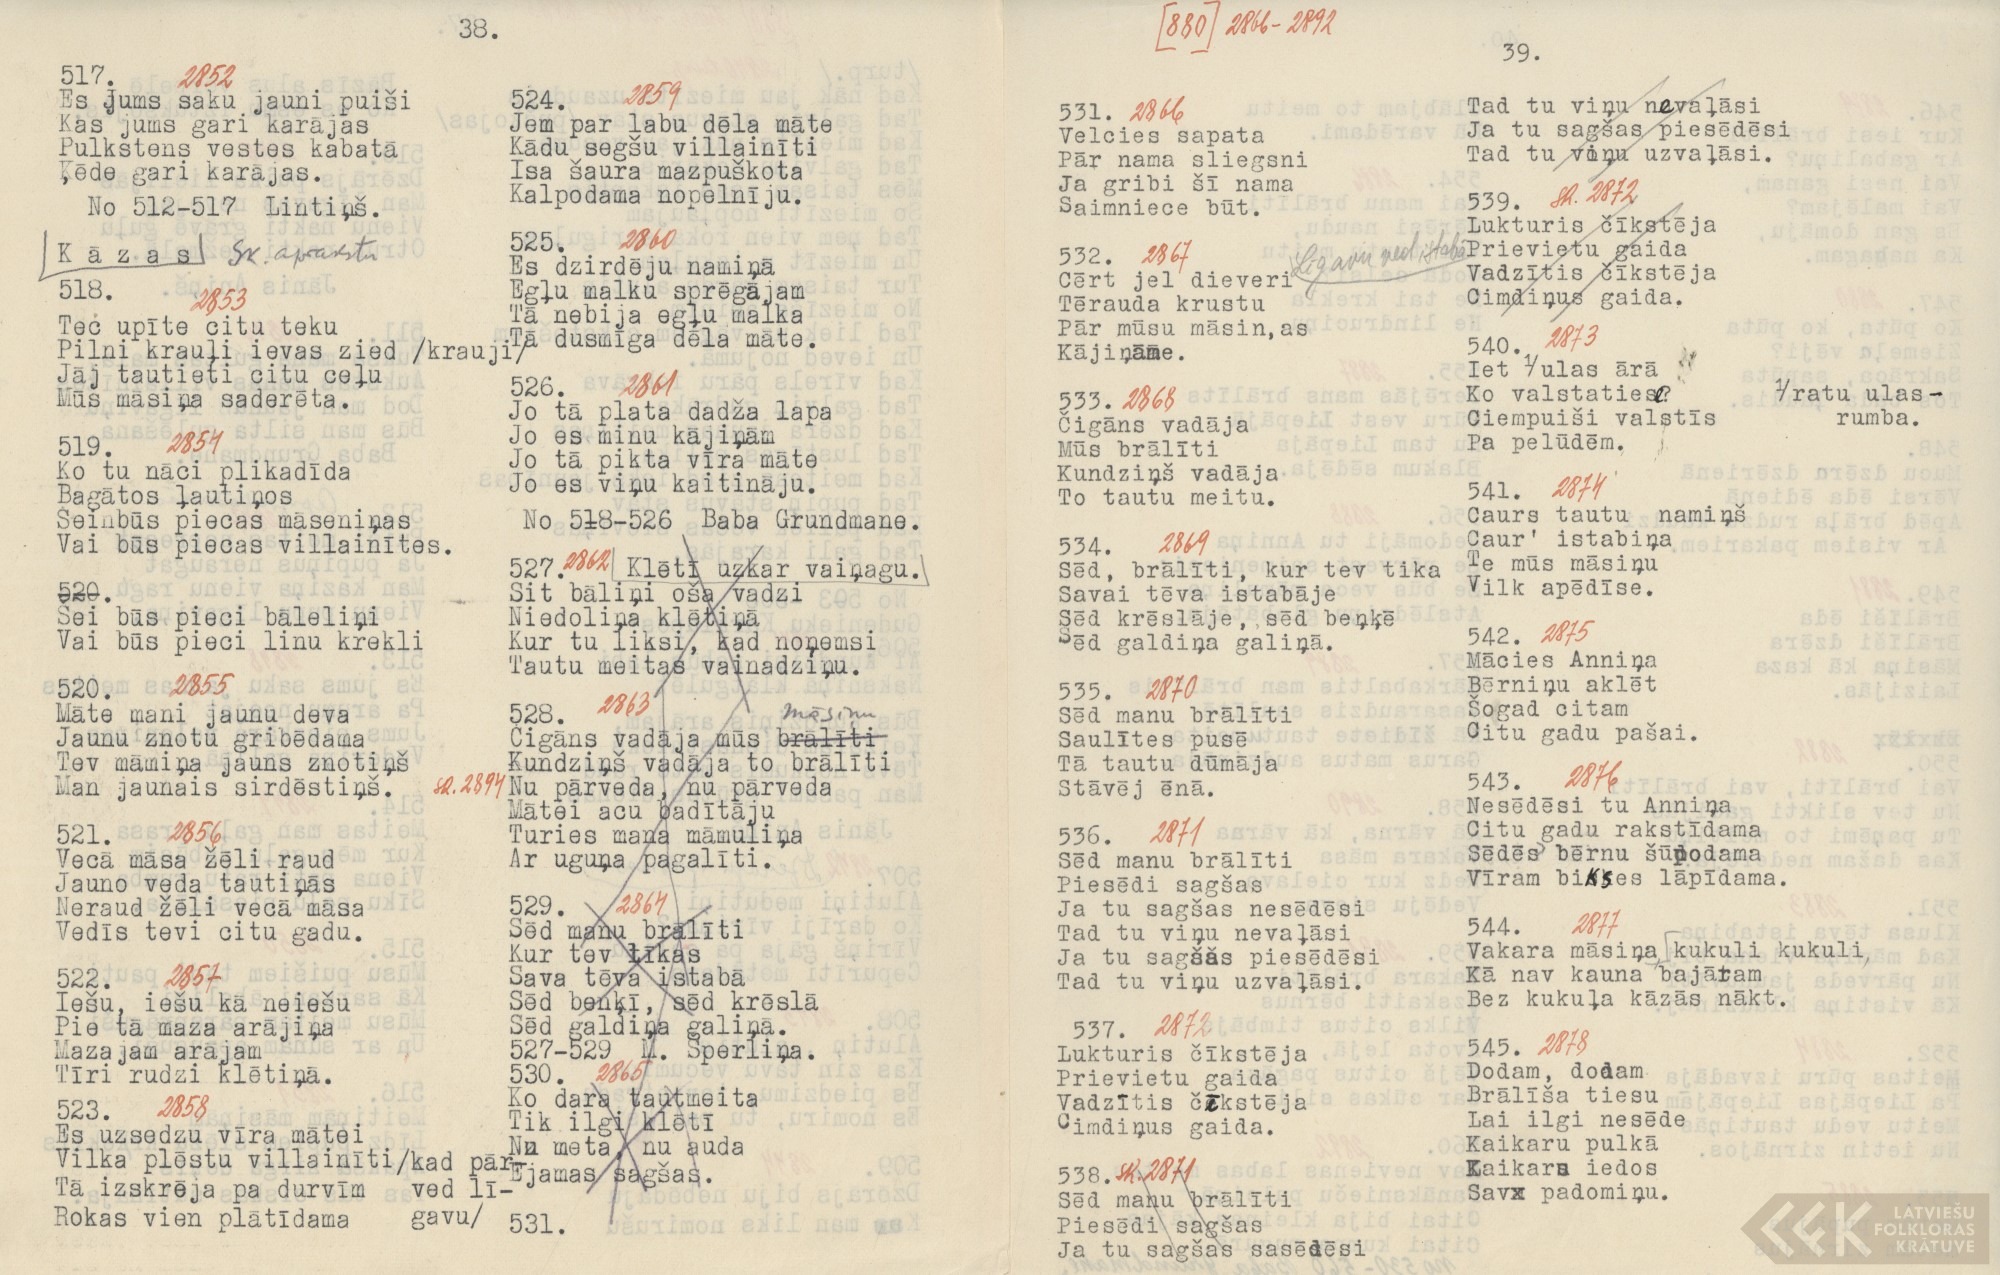 38.
517. 2852
Es jums saku jauni puiši
Kas jums gari karājas
Pulkstens vestes kabatā
Ķēde gari karājas.
No 512-517 Lintiņš.
Kāzas Sk. aprakstu
518. 2853
Tec upīte citu teku
Pilni krauļi ievas zied /krauji/
Jāj tautieti citu ceļu
Mūs māsiņa saderēta.
519. 2854
Ko tu nāci plikadīda
Bagātos ļautiņos
Seinbūs piecas māseniņas
Vai būs piecas villainītes.
520.
Sei būs pieci bāleliņi
Vai būs pieci linu krekli
520. 2855
Māte mani jaunu deva
Jaunu znotu gribēdama
Tev māmiņa jauns znotiņš
Man jaunais sirdēstiņš.
521. 2856
Vecā māsa žēli raud
Jauno veda tautiņās
Neraud žēli vecā māsa
Vedīs tevi citu gadu.
522. 2857
Iešu, iešu kā neiešu
Pie tā maza arājiņa
Mazajam arājam
Tīri rudzi klētiņā.
523. 2858
Es uzsedzu vīra mātei
Vilka plēstu villainīti /kad pār-
Tā izskrēja pa durvīm ved lī-
Rokas vien plātīdama gavu/
524. 2859
Jem par labu dēla māte
Kādu segšu villainīti
Isa šaura mazpuškota
Kalpodama nopelnīju.
525. 2860
Es dzirdēju namiņā
Egļu malku sprēgājam
Tā nebija egļu malka
Tā dusmīga dēla māte.
526. 2861
Jo tā plata dadža lapa
Jo es minu kājiņām
Jo tā pikta vīra māte
Jo es viņu kaitināju.
No 518-526 Baba Grundmane.
527. 2862 Klētī uzkar vaiņagu.
Sit bāliņi oša vadzi
Niedoliņa klētiņā
Kur tu liksi, kad noņemsi
Tautu meitas vainadziņu.
528. 2863 māsiņu
Cigāns vadāja mūs brālīti
Kundziņš vadāja to brālīti
sk. 2894 Nu pārveda, nu pārveda
Mātei acu badītāju
Turies mana māmuliņa
Ar uguņa pagalīti.
529. 2864
Sēd manu brālīti
Kur tev tīkas
Sava tēva istabā
Sēd beņķī, sēd krēslā
Sēd galdiņa galiņā.
527-529 M. Sperliņa.
530. 2865
Ko dara tautmeita
Tik ilgi klētī
Nu meta, nu auda
Ejamas sagšas.
531.
[880] 2866-2892
39.
531. 2866
Velcies sapata
Pār nama sliegsni
Ja gribi šī nama
Saimniece būt.
532. 2867 Līgavu ved istabā
Cērt jel dieveri
Tērauda krustu
Pār mūsu māsin,as
Kājiņām.
533. 2868
Čigāns vadāja
Mūs brālīti
Kundziņš vadāja
To tautu meitu.
534. 2869
Sēd, brālīti, kur tev tika
Savai tēva istabāje
Sēd krēslāje, sēd beņķē
Sēd galdiņa galiņā.
535. 2870
Sēd manu brālīti
Saulītes pusē
Tā tautu dūmāja
Stāvēj ēnā.
536. 2871
Sēd manu brālīti
Piesēdi sagšas
Ja tu sagšas nesēdēsi
Tad tu viņu nevaļāsi
Ja tu sagšas piesēdēsi
Tad tu viņu uzvaļāsi.
537. 2872
Lukturis čīkstēja
Prievietu gaida
Vadzītis čīkstēja
Cimdiņus gaida.
538. sk. 2871
Sēd manu brālīti
Piesēdi sagšas
Ja tu sagšas sasēdēsi
Tad tu viņu nevaļāsi
Ja tu sagšas piesēdēsi
Tad tu viņu uzvaļāsi.
539. sk. 2872
Lukturis čīkstēja
Prievietu gaida
Vadzītis čīkstēja
Cimdiņus gaida.
540. 2873
Iet 1/ulas ārā
Ko valstaties? 1/ratu ulas-
Ciempuiši valstīs rumba.
Pa pelūdēm.
541. 2874
Caurs tautu namiņš
Caur' istabiņa
Te mūs māsiņu
Vilk apēdīse.
542. 2875
Mācies Anniņa
Bērniņu aklēt
Šogad citam
Citu gadu pašai.
543. 2876
Nesēdēsi tu Anniņa
Citu gadu rakstīdama
Sēdēs bērnu šūpodama
Vīram bikses lāpīdama.
544. 2877
Vakara māsiņa kukuli kukuli,
Kā nav kauna bajāram
Bez kukuļa kāzās nākt.
545. 2878
Dodam, dodam
Brālīša tiesu
Lai ilgi nesēde
Kaikaru pulkā
Kaikars iedos
Savx padomiņu.
LATVIEŠU
FOLKLORAS
KRĀTUVE